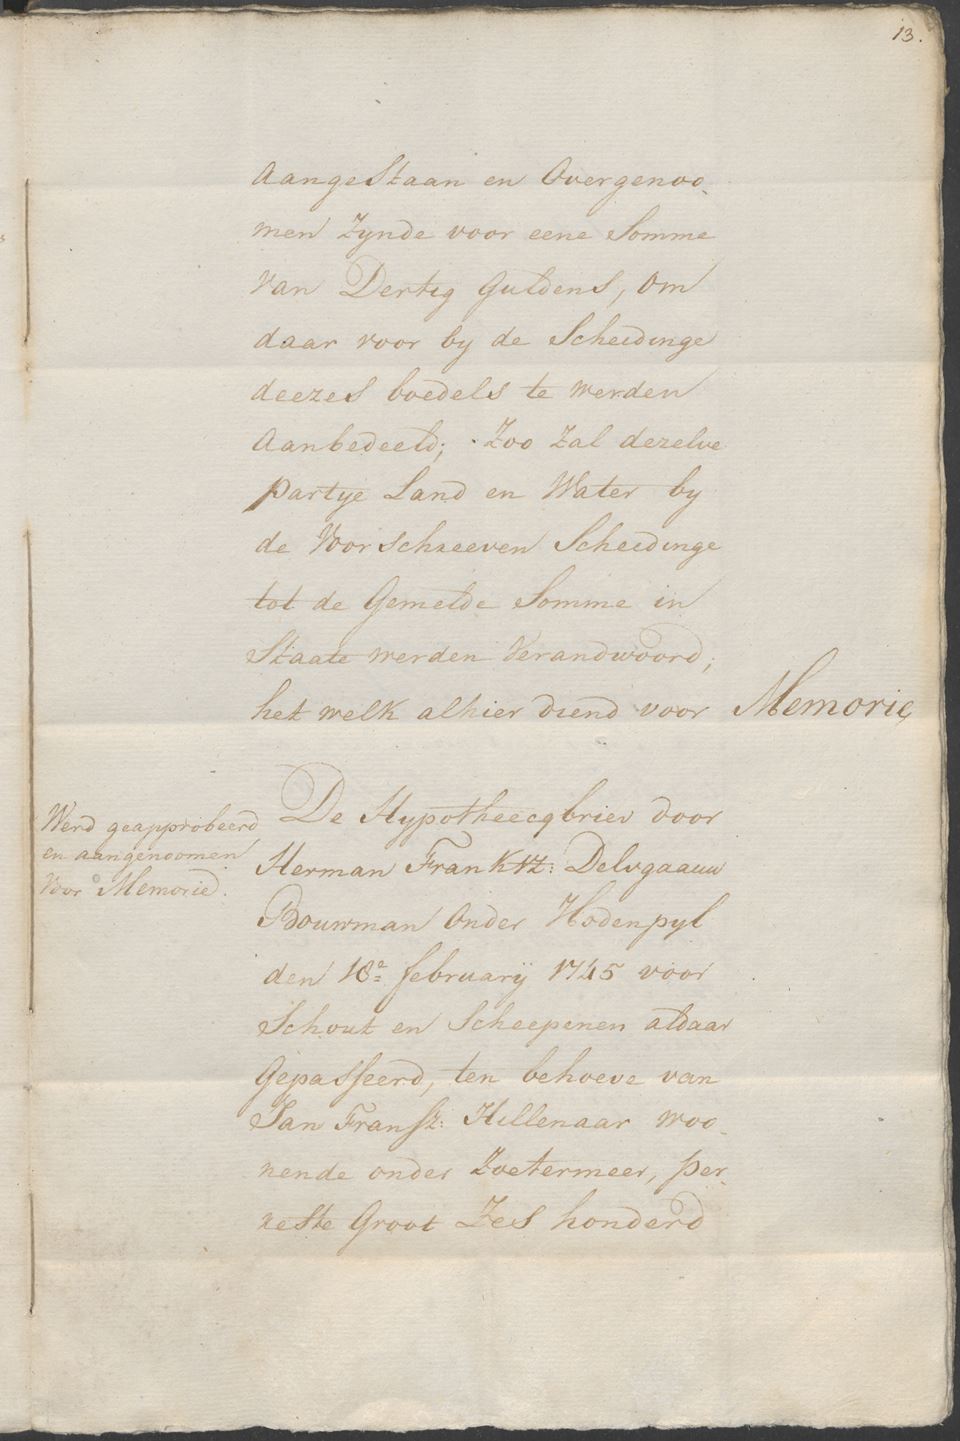 13.
Aangestaan en Overgenoo-
men Zynde voor eene Somme
van Dertig Guldens, Om
daar voor by de Scheidinge
deezes boedels te werden
Aanbedeeld; Zoo Zal dezelve
partye Land en Water by
de Voorschreeven Scheidinge
tot de Gemelde Somme in
Staate werden Verandwoord;
het welk alhier diend voor Memorie
Werd geapprobeerd
en aangenoomen
Voor Memorie.
De Hypotheecqbriev door
Herman Franktz: Delvgaauw
Bouwman Onder Hodenpyl
den 18e february 1745 voor
Schout en Scheepenen aldaar
Gepasseerd, ten behoeve van
Jan Fransz: Hillenaar woo-
nende onder Zoetermeer, per
reste Groot Zes honderd